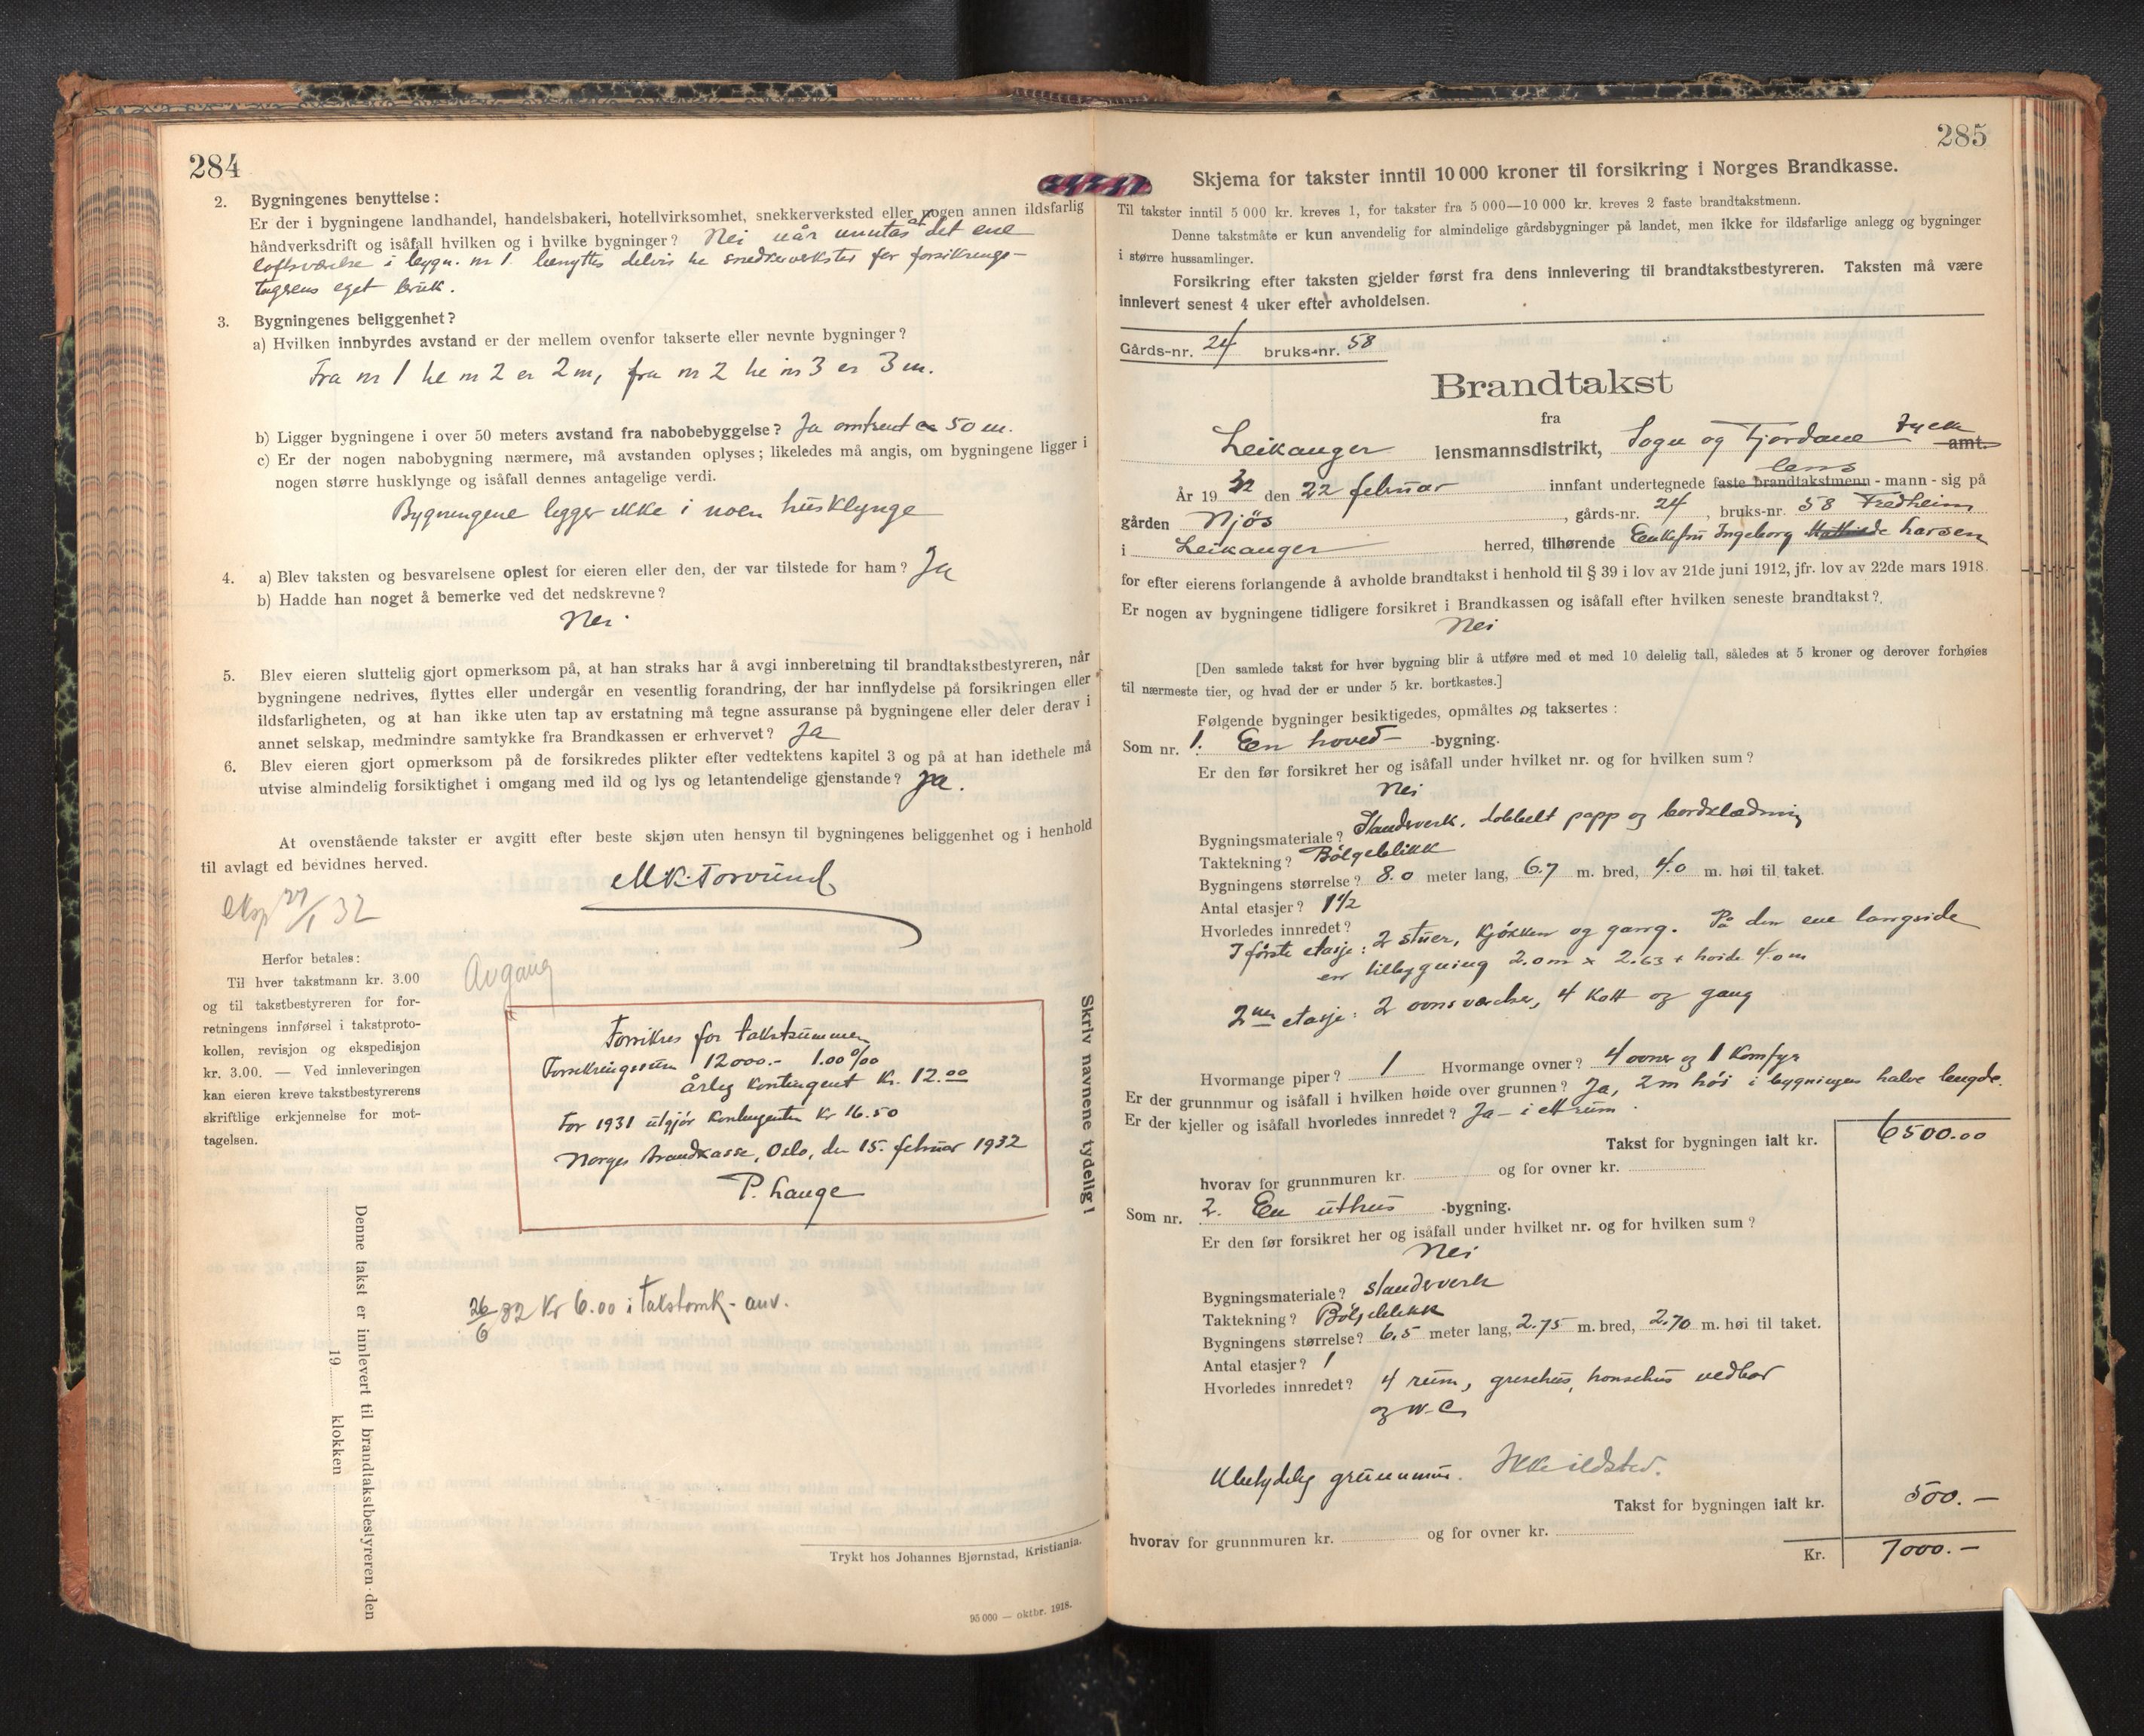 284
2. Bygningenes benyttelse:
Er der i bygningene landhandel, handelsbakeri, hotellvirksomhet, snekkerverksted eller nogen annen ildsfarlig
håndverksdrift og isåfall hvilken og i hvilke bygninger? Nei når unntas at det ene
loftsværelse i bygn. nr 1 benyttes delvis til snedkerverksted for forsikrings-
tagerens eget bruk.
3. Bygningenes beliggenhet?
a) Hvilken innbyrdes avstand er der mellem ovenfor takserte eller nevnte bygninger?
Fra nr 1 til nr 2 er 2 m, fra nr 2 til nr 3 er 3 m.
b) Ligger bygningene i over 50 meters avstand fra nabobebyggelse? Ja omtrent 50 m.
c) Er der nogen nabobygning nærmere, må avstanden oplyses; likeledes må angis, om bygningene ligger i
nogen større husklynge og isåfall dennes antagelige verdi.
Bygningene ligger ikke i noen husklynge
4. a) Blev taksten og besvarelsene oplest for eieren eller den, der var tilstede for ham? Ja
b) Hadde han noget å bemerke ved det nedskrevne?
Nei.
5. Blev eieren sluttelig gjort opmerksom på, at han straks har å avgi innberetning til brandtakstbestyreren, når
bygningene nedrives, flyttes eller undergår en vesentlig forandring, der har innflydelse på forsikringen eller
ildsfarligheten, og at han ikke uten tap av erstatning må tegne assuranse på bygningene eller deler derav i
annet selskap, medmindre samtykke fra Brandkassen er erhvervet? Ja
6. Blev eieren gjort opmerksom på de forsikredes plikter efter vedtektens kapitel 3 og på at han idethele må
utvise almindelig forsiktighet i omgang med ild og lys og letantendelige gjenstande? Ja.
At ovenstående takster er avgitt efter beste skjøn uten hensyn til bygningenes beliggenhet og i henhold
til avlagt ed bevidnes herved.
M K. Torvund
eksp 27/1 32
Herfor betales:
Til hver takstmann kr. 3.00
og til takstbestyreren for for-
retningens innførsel i takstproto-
kollen, revisjon og ekspedisjon
kr. 3.00. — Ved innleveringen
kan eieren kreve takstbestyrerens
skriftlige erkjennelse for mot-
tagelsen.
Avgang
Forsikres for takstsummen
Forsikringssum 12000.- 1.00 ‰
årlig kontingent kr. 12.00
For 1931 utgjør kontingenten kr 16.50
Norges Brandkasse, Oslo, den 15. februar 1932
P. Lange
26/6 32 kr 6.00 i takstomk- anv.
Denne takst er innlevert til brandtakstbestyreren den
19 klokken
Skriv navnene tydelig!
Trykt hos Johannes Bjørnstad, Kristiania.
95 000 — oktbr. 1918.
285
Skjema for takster inntil 10 000 kroner til forsikring i Norges Brandkasse.
Til takster inntil 5 000 kr. kreves 1, for takster fra 5 000—10 000 kr. kreves 2 faste brandtakstmenn.
Denne takstmåte er kun anvendelig for almindelige gårdsbygninger på landet, men ikke for ildsfarlige anlegg og bygninger
i større hussamlinger.
Forsikring efter taksten gjelder først fra dens innlevering til brandtakstbestyreren. Taksten må være
innlevert senest 4 uker efter avholdelsen.
Gårds-nr. 24 bruks-nr. 58
Brandtakst
fra
Leikanger lensmannsdistrikt, Sogn og Fjordane fylke amt.
År 1932 den 22 februar innfant undertegnede faste brandtakstmenn lens - mann - sig på
gården Njøs, gårds-nr. 24, bruks-nr. 58 Fredheim
i Leikanger herred, tilhørende Enkefru Ingeborg Larsen
for efter eierens forlangende å avholde brandtakst i henhold til § 39 i lov av 21de juni 1912, jfr. lov av 22de mars 1918.
Er nogen av bygningene tidligere forsikret i Brandkassen og isåfall efter hvilken seneste brandtakst?
Nei
[Den samlede takst for hver bygning blir å utføre med et med 10 delelig tall, således at 5 kroner og derover forhøies
til nærmeste tier, og hvad der er under 5 kr. bortkastes.]
Følgende bygninger besiktigedes, opmåltes og taksertes:
Som nr. 1. En hoved- -bygning.
Er den før forsikret her og isåfall under hvilket nr. og for hvilken sum?
Nei
Bygningsmateriale? Standverk. dobbelt papp og bordklædning
Taktekning? Bølgeblikk
Bygningens størrelse? 8.0 meter lang, 6.7 m. bred, 4.0 m. høi til taket.
Antal etasjer? 1 1/2
Hvorledes innredet?
I første etasje: 2 stuer, kjøkken og gang. På den ene langside
en tilbygning 2.0 m x 2.63 + høide 4.0 m
2nen etasje: 2 ovnsværelser, 4 kott og gang
Hvormange piper? 1 Hvormange ovner? 4 ovner og 1 komfyr
Er der grunnmur og isåfall i hvilken høide over grunnen? Ja, 2 m høi i bygningens halve lengde.
Er der kjeller og isåfall hvorledes innredet? Ja - i ett rum.
Takst for bygningen ialt kr. 6500.00
hvorav for grunnmuren kr. og for ovner kr.
Som nr. 2. En uthus -bygning.
Er den før forsikret her og isåfall under hvilket nr. og for hvilken sum?
Nei
Bygningsmateriale? standverk
Taktekning? Bølgeblikk
Bygningens størrelse? 6,5 meter lang, 2.75 m. bred, 2.70 m. høi til taket.
Antal etasjer? 1
Hvorledes innredet? 4 rum, grisehus, hønsehus vedbod
og W.C.
Ubetydelig grunnmur. Ikke ildsted.
Takst for bygningen ialt kr. 500.-
hvorav for grunnmuren kr. og for ovner kr.
Kr. 7000.-